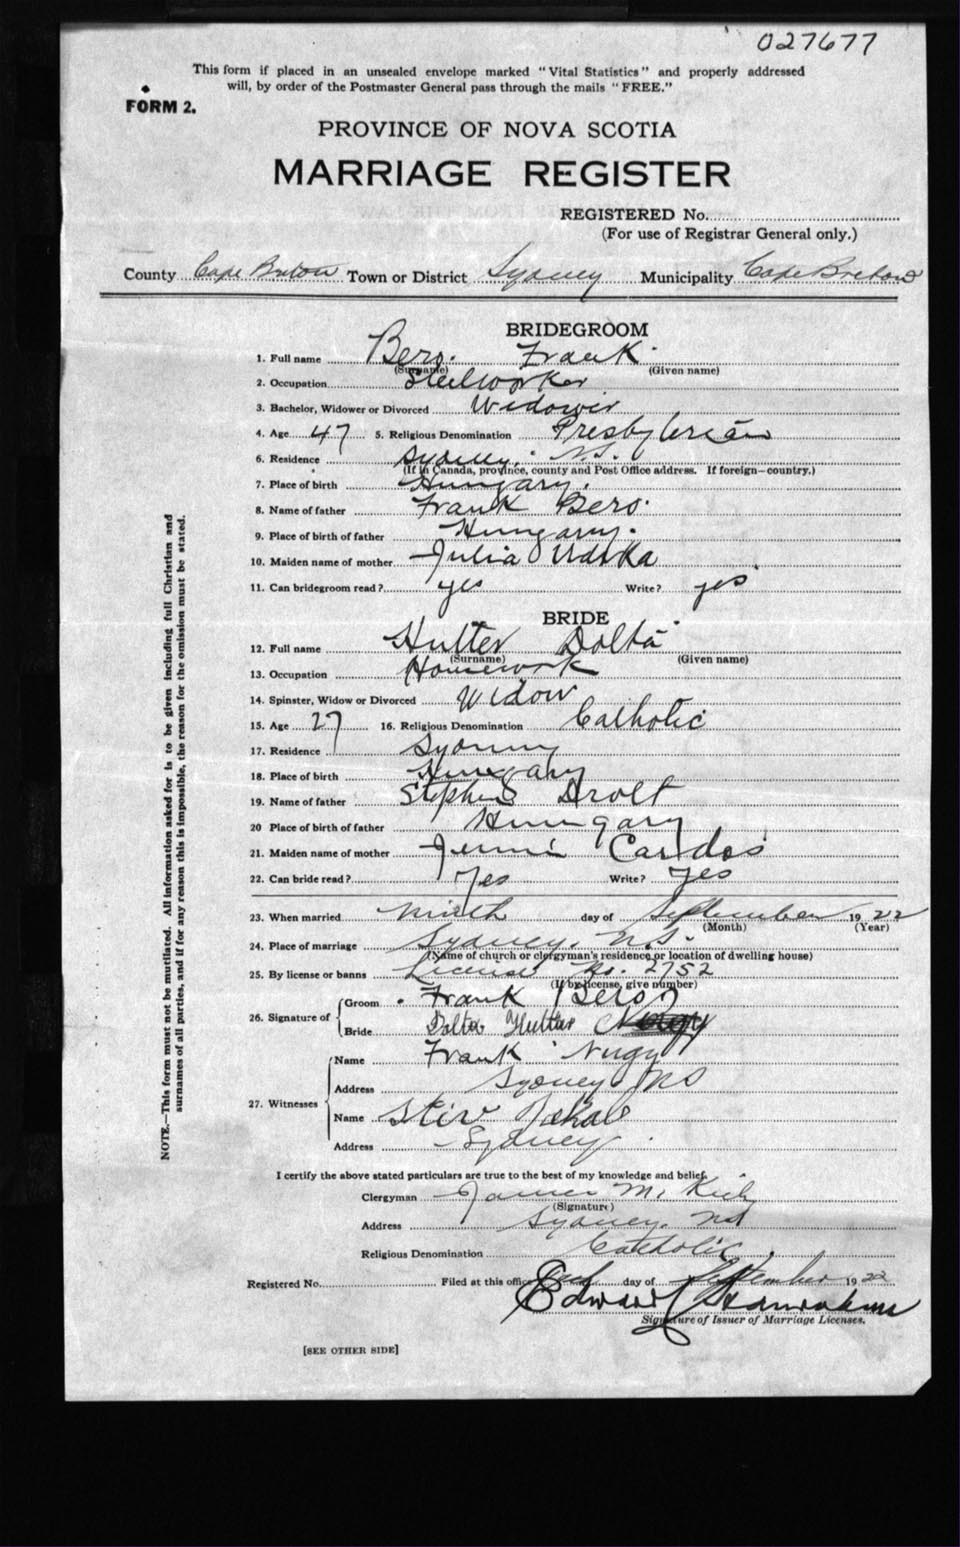 027677
This form if placed in an unsealed envelope marked "Vital Statistics" and properly addressed
will, by order of the Postmaster General pass through the mails "FREE."
FORM 2.
PROVINCE OF NOVA SCOTIA
MARRIAGE REGISTER
REGISTERED No.
(For use of Registrar General only.)
County Cape Breton Town or District Sydney Municipality Cape Breton
BRIDEGROOM
1. Full name Bero. Frank
(Surname) (Given name)
2. Occupation Steelworker
3. Bachelor, Widower or Divorced Widower
4. Age 47 5. Religious Denomination Presbyterian
6. Residence Sydney, N.S.
(If in Canada, province, county and Post Office address. If foreign—country.)
7. Place of birth Hungary.
8. Name of father Frank Bero.
9. Place of birth of father Hungary.
10. Maiden name of mother Julia
11. Can bridegroom read? yes Write? yes
BRIDE
12. Full name Hutter Dolta
(Surname) (Given name)
13. Occupation Housework
14. Spinster, Widow or Divorced Widow
15. Age 27 16. Religious Denomination Catholic
17. Residence Sydney
18. Place of birth Hungary
19. Name of father Stephen Drolt
20 Place of birth of father Hungary
21. Maiden name of mother Jennie Cardos
22. Can bride read? Yes Write? Yes
23. When married ninth day of September 1922
(Month) (Year)
24. Place of marriage Sydney, N.S.
(Name of church or clergyman's residence or location of dwelling house)
25. By license or banns License No. 2752
(If by license, give number)
26. Signature of
Groom Frank Bero
Bride Dolta Hutter
27. Witnesses
Name Frank Nugy
Address Sydney NS
Name Stiv
Address Sydney
I certify the above stated particulars are true to the best of my knowledge and belief.
Clergyman James M. Kiely
(Signature)
Address Sydney. NS
Religious Denomination Catholic
Registered No. Filed at this office day of September 1922
Edward
Signature of Issuer of Marriage Licenses.
[SEE OTHER SIDE]
NOTE.—This form must not be mutilated. All information asked for is to be given including full Christian and
surnames of all parties, and if for any reason this is impossible, the reason for the omission must be stated.